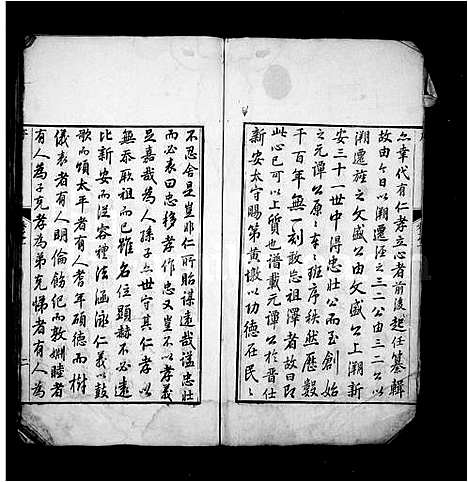 亦幸代有仁孝立心者前後起任纂輯
故由今日以溯遷涇之三二公由三二公以
溯遷旌之文盛公由文盛公上溯新
安三十一世中得忠壯公而至創始
之元譚公原原本本班序秩然歷數
千百年無一刻敢忘祖澤者故曰即
此心已可以上質也譜載元譚公於晉仕
新安太守賜第黄墩以功德在民民
不忍舍是豈非仁所貽謀遠哉逮忠壯
而必表曰忠移孝作忠又豈不以孝義
是嘉哉為人孫子亦世守其仁孝以
無忝厥祖而已雖名位顯赫不必遠
比新安而從容禮法涵泳仁義以鼓
歌而頌太平者有人耆年碩德而樹
儀表者有人明倫飭紀而敦姻睦者
有人為子克孝為弟克悌者有人為